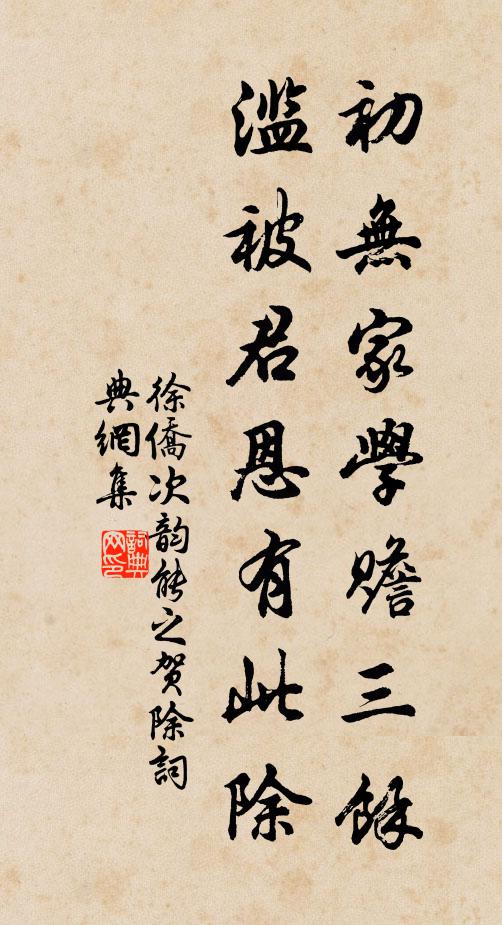 初無家學贍三餘
濫被君恩有此除
徐僑次韵能之贺除詞
典網集
詞典网印